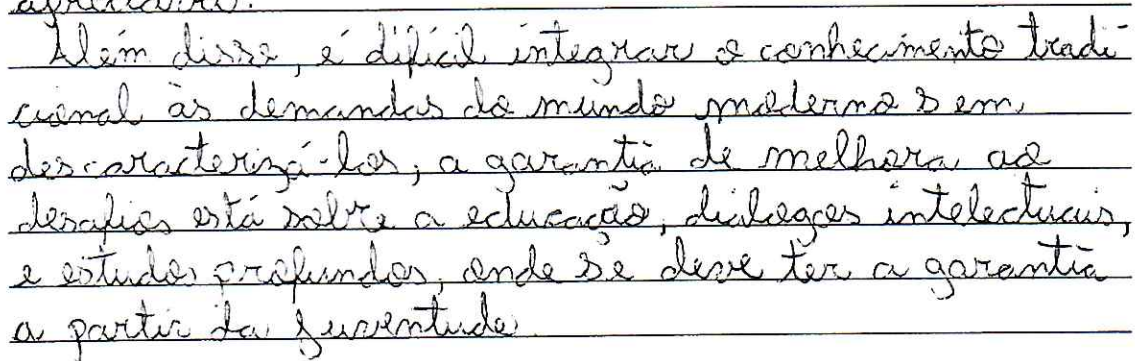 Além disso, é difícil integrar o conhecimento tradi
cional às demandas do mundo moderno sem
descaracterizá-los, a garantia de melhora ao
desafios está sobre a educação, diálogos intelectuais,
e estudos profundos, onde se deve ter a garantia
a partir da juventude.